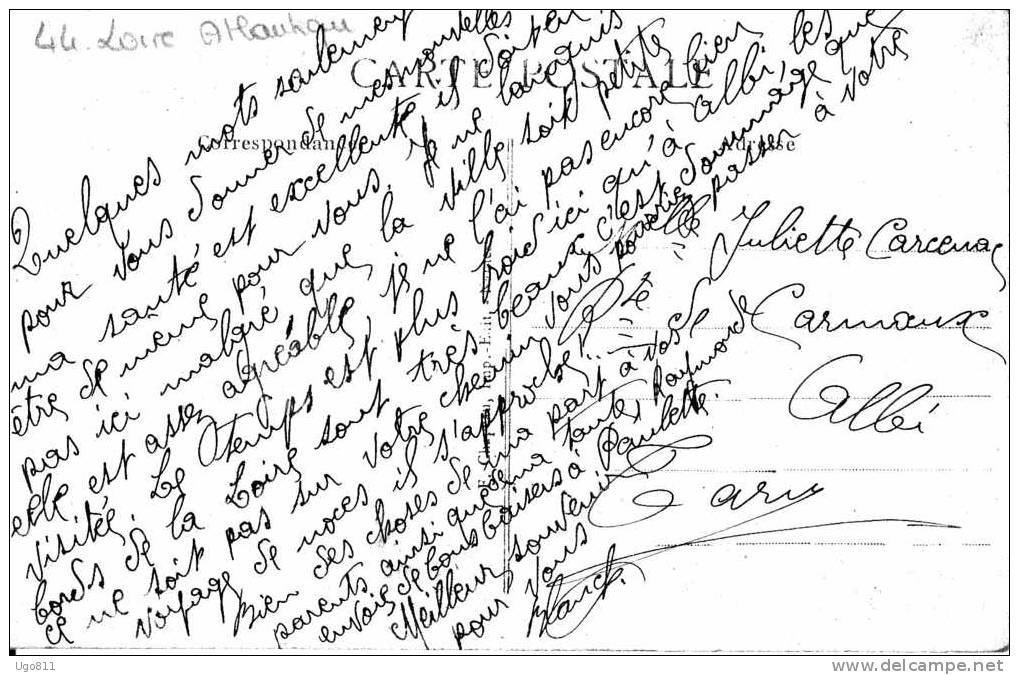 44. Loire Atlantique
CARTE POSTALE
Correspondance
Adresse
Quelques mots seulement
pour vous donner de mes nouvelles
ma santé est excellente il doit en
être de même pour vous. Je ne languis
pas ici malgré que la ville soit petite
elle est assez agréable, je ne l'ai pas encore bien
visitée. Le temps est plus froid ici qu'à Albi, les
bords de la Loire sont très beaux, c'est dommage que
ce ne soit pas sur votre chemin vous pourriez passer à votre
voyage de noces il s'approche!
Bien des choses de ma part à vos
parents ainsi que ma tante, Raymonde
envoie de bons baisers à Paulette.
Meilleur souvenir
pour vous
Blanch.
Mlle Juliette Carcenac
Rte de Carmaux
Albi
Tarn
Ugo811
http://www.delcampe.net